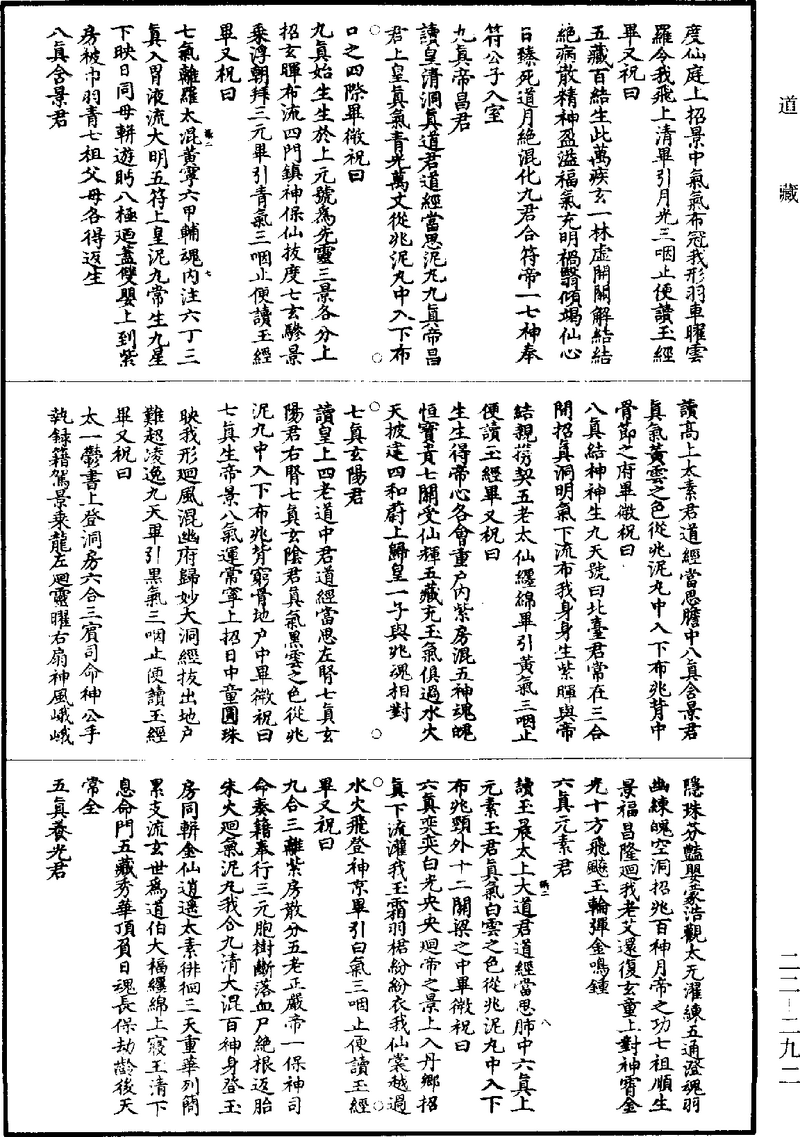 道藏
度仙庭上招景中氣氣布冠我形羽車曜雲
羅令我飛上清畢引月光三咽止便讀玉經
畢又祝曰
五藏百結生此萬疾玄一林虛開關解結結
絕病散精神盈溢福氣充明禍翳傾竭仙心
日臻死道月絕混化九君合符帝一七神奉
符公子入室
九真帝昌君
讀皇清洞真道君道經當思泥丸九真帝昌
君上皇真氣青光萬丈從兆泥丸中入下布
口之四際畢微祝曰
九真始生生於上元號為先靈三景各分上
招玄暉布流四門鎮神保仙拔度七玄驂景
乘浮朝拜三元畢引青氣三咽止便讀玉經
畢又祝曰
七氣離羅太混黃寧六甲輔魂內注六丁三
真入胃液流大明五符上皇泥丸常生九星
下映日同母軿遊眄八極迴蓋雙嬰上到紫
房被巾羽青七祖父母各得返生
八真含景君
讀高上太素君道經當思膽中八真含景君
真氣黃雲之色從兆泥丸中入下布兆背中
骨節之府畢微祝曰
八真結神神生九天號曰北臺君常在三合
開招真洞明氣下流布我身身生紫暉與帝
結親携契五老太仙纏綿畢引黃氣三咽止
便讀玉經畢又祝曰
生生得帝心各會重戶內紫房混五神魂魄
恒寶貴七關受仙輝五藏充玉氣俱過水火
天披達四和蔚上歸皇一子與兆魂相對
七真玄陽君
讀皇上四老道中君道經當思左腎七真玄
陽君右腎七真玄陰君真氣黑雲之色從兆
泥丸中入下布兆背窮骨地戶中畢微祝曰
七真生帝景八氣運常寧上招日中童圓珠
映我形迴風混幽府歸妙大洞經拔出地戶
難超凌逸九天畢引黑氣三咽止便讀玉經
畢又祝曰
太一鬱書上登洞房六合三賓司命神公手
執録籍駕景乘龍左迴靈曜右扇神風峨峨
隱珠芬豔嬰蒙浩觀太无濯練五通澄魂羽
幽練魄空洞招兆百神月帝之功七祖順生
景福昌隆迴我老艾還復玄童上對神霄金
光十方飛飈玉輪彈金鳴鍾
六真元素君
讀玉晨太上大道君道經當思肺中六真上
元素玉君真氣白雲之色從兆泥丸中入下
布兆頸外十二關梁之中畢微祝曰
六真奕奕白光央央迴帝之景上入丹鄉招
真下流灌我玉霜羽裙紛紛衣我仙裳越過
水火飛登神京畢引白氣三咽止便讀玉經
畢又祝曰
九合三離紫房散分五老正嚴帝一保神司
命奏籍奉行三元胞樹斷落血尸絕根返胎
朱火迴氣泥丸我合九清大混百神身登玉
房同軿金仙逍遙太素徘徊三天重華列簡
累支流玄世為道伯大福纏綿上寢玉清下
息命門五藏秀華頂負日魂長保劫齡後天
常全
五真養光君
二二-二九二